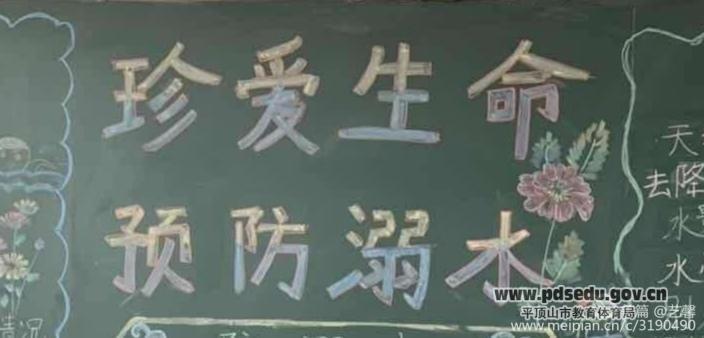 珍爱生命
预防溺水
天
去降
水
水
情况
www.pdsedu.gov.cn
平顶山市教育体育局
篇 @艺馨
www.meipian.cn/c/3190490